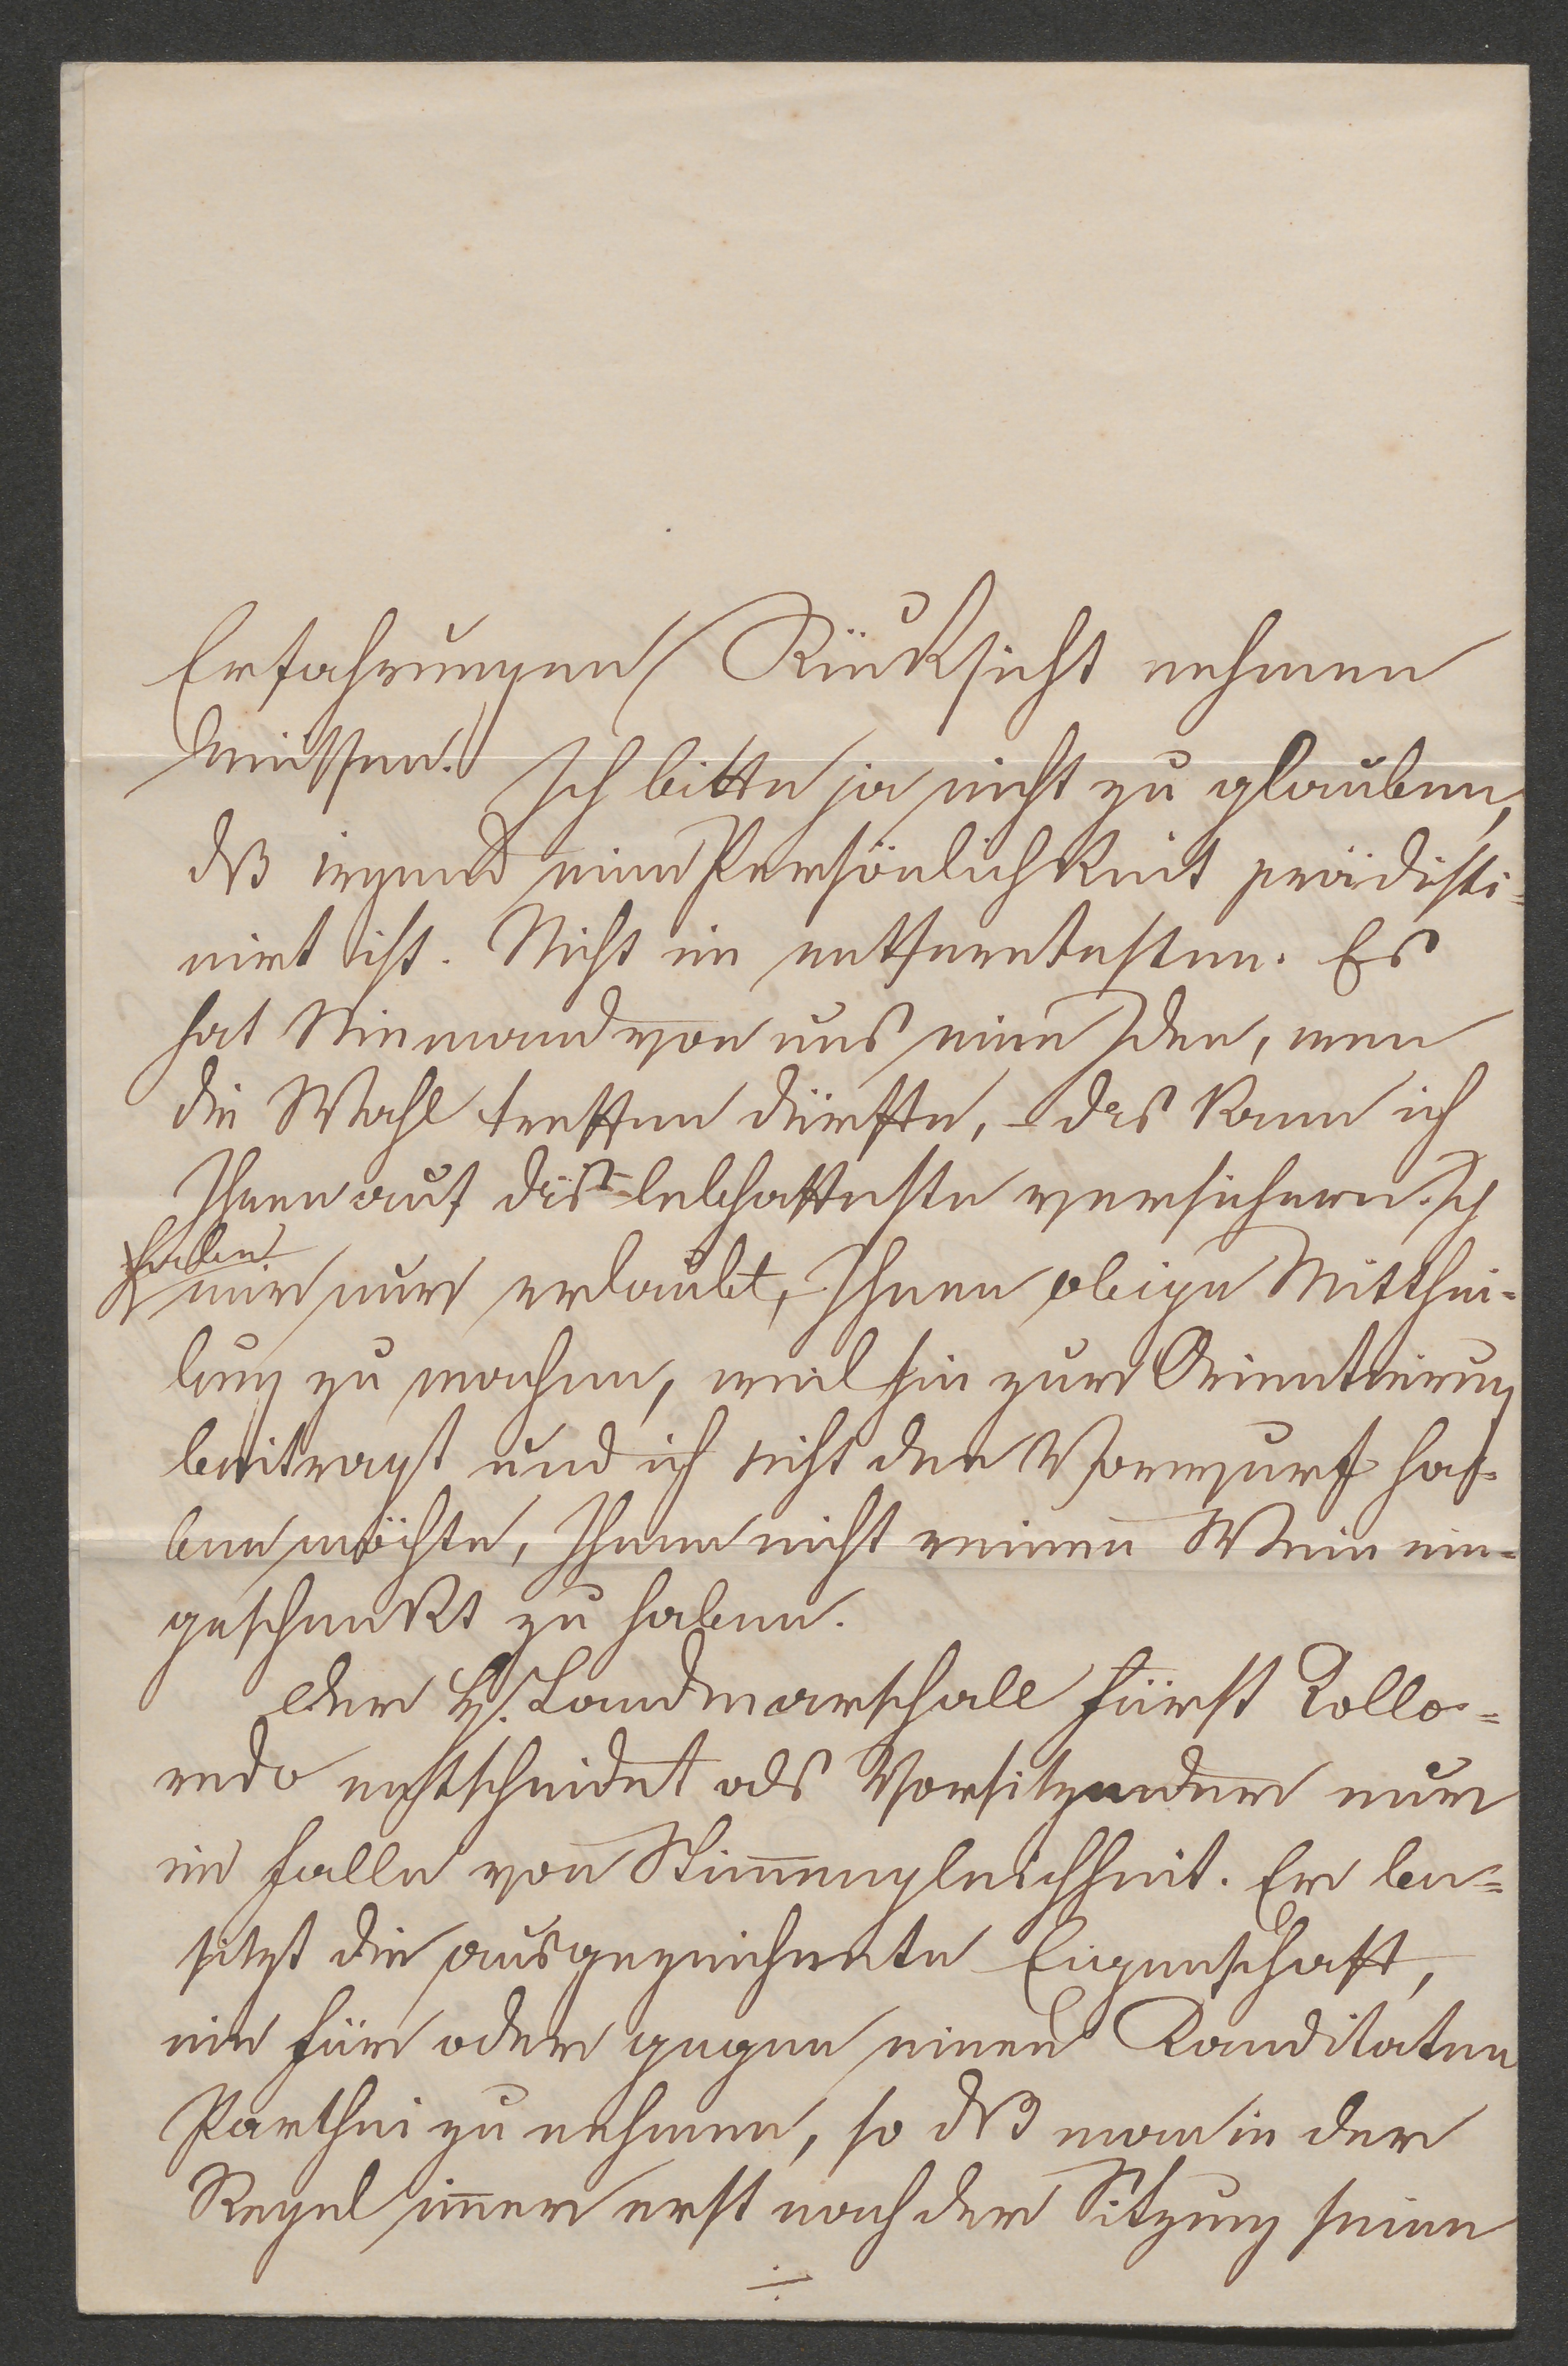 Erfahrungen/ Rücksicht nehmen
müssen. Ich bitte ja nicht zu glauben,
dß irgend eine Persönlichkeit prädisti-
nirt ist. Nicht im entferntesten. Es
hat Niemand von uns eine Idee, wen
die Wahl treffen dürfte, – das kann ich
Ihnen auf das lebhafteste versichern. Ich
habe
mir nur erlaubt, Ihnen obige Mitthei-
lung zu machen, weil sie zur Orientierung
beitragt und ich nicht den Vorwurf ha-
ben möchte, Ihnen nicht reinen Wein ein-
geschenkt zu haben.
Der H. Landmarschall Fürst Collo-
redo entscheidet als Vorsitzender nur
im Falle von Stim̄engleichheit. Er be-
sitzt die ausgezeichnete Eigenschaft,
nie für oder gegen einen Kanditaten
Parthei zu nehmen, so dß man in der
Regel im̄er erst nach der Sitzung seine
./.